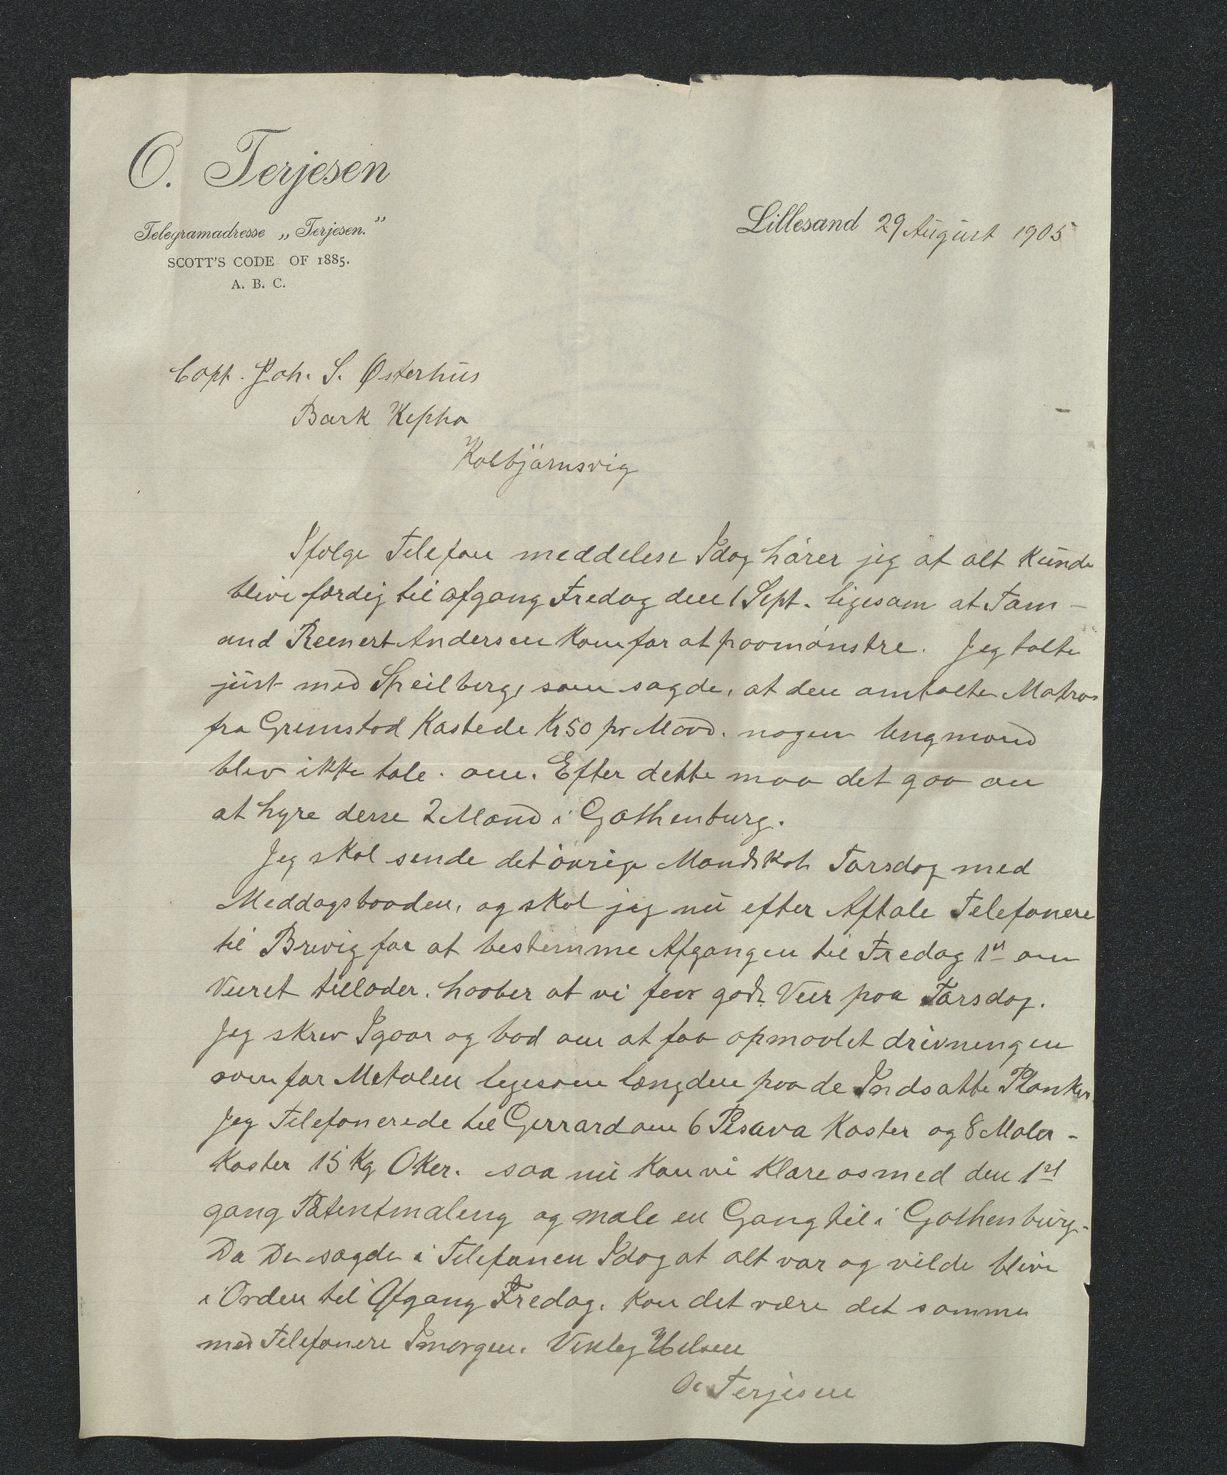 O. Terjesen
Telegramadresse „Terjesen.”
SCOTT'S CODE OF 1885.
A. B. C.
Lillesand 29 August 1905
Capt. Joh. S. Østerhus
Bark Kepha
Kolbjörnsvig
Ifølge Telefon meddelese Idag hörer jeg at alt Kunde
blive færdig til Afgang Fredag den 1 Sept. ligesom at Töm-
and Reenert Andersen kom for at paamönstre. Jeg talte
just med Speilberg, som sagde, at den omtalte Matros
fra Grimstad Kostede Kr 50 pr Maand. nogen ungmand
blev ikke tale. om. Efter dette maa det gaa an
at hyre desse 2 Mand i Gothenburg.
Jeg skal sende det övrige Mandskab Torsdag med
Meddagsbaaden, og skal jeg nu efter Aftale Telefonere
til Brevig for at bestemme Afgangen til Fredag 1st om
Veiret tillader. haaber at vi faar godt Veir paa Torsdag.
Jeg skrev Igaar og bad om at faa opmaalet drivningen
som for Metalen ligesom længden paa de Indsatte Planker
Jeg Telefonerede til Gerrard om 6 Pisava Koster og 8 Maler-
Koster 15 Kg Oker. saa nu kan vi klare os med den 1st
gang Patentmaling og male en Gang til i Gothenburg.
Da De sagde i Telefonen Idag at alt var og vilde blive
i Orden til Afgang Fredag. kan det være det samme
med Telefonere Imorgen. Venlig Hilsen
O. Terjesen